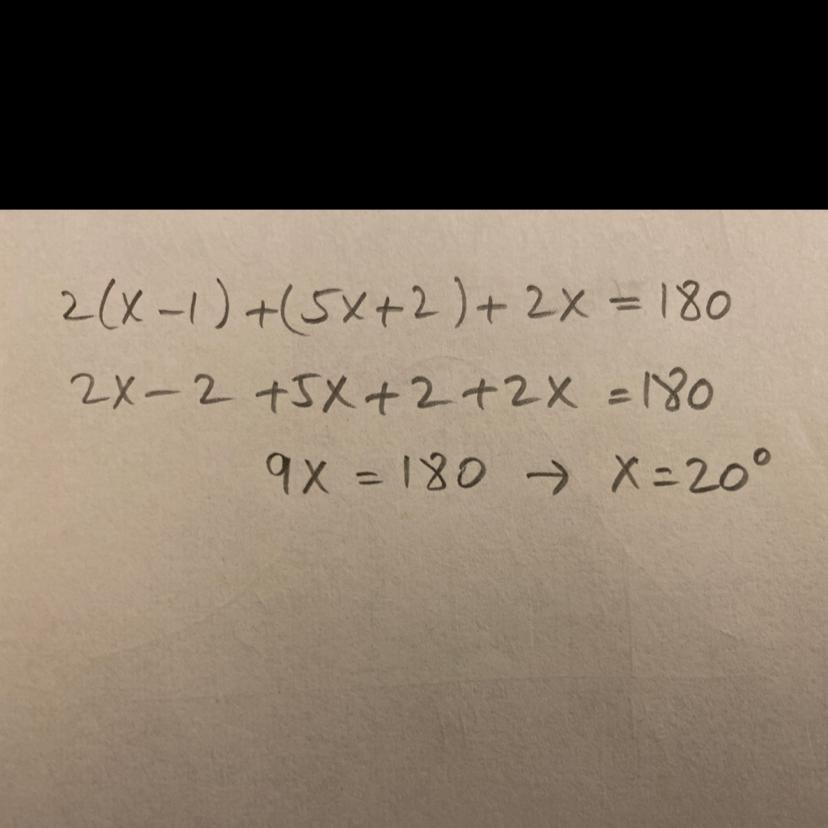 2(x-1)+(5x+2)+2x=180
2x-2+5x+2+2x=180
9x=180→x=20°